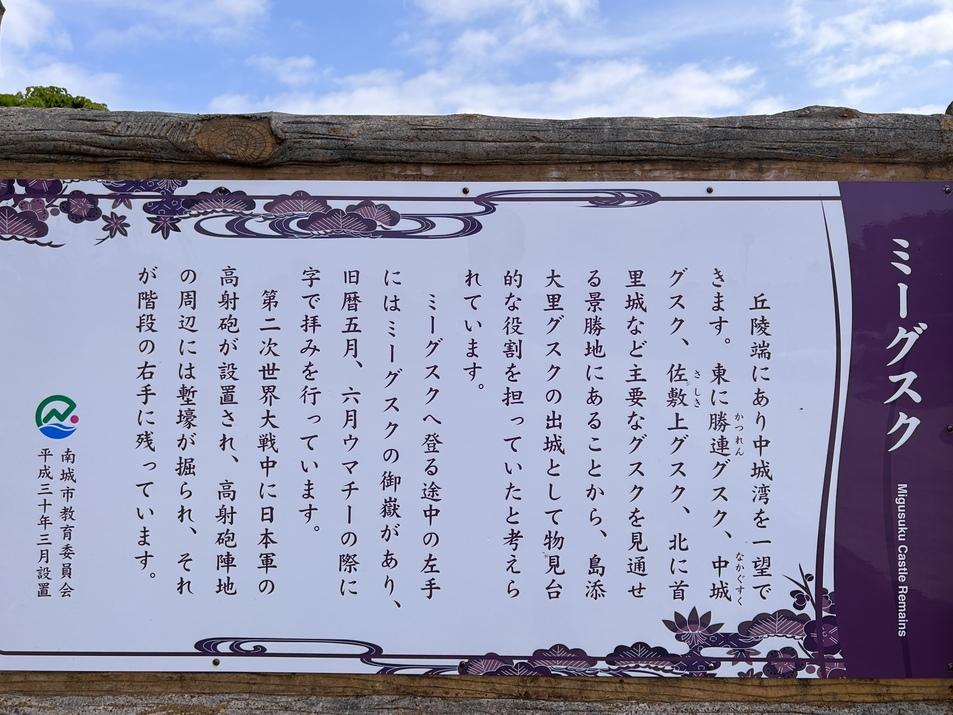 ミーグスク
Migusuku Castle Remains
丘陵端にあり中城湾を一望で
きます。東に勝連グスク、中城
かつれん
なかぐすく
グスク、佐敷上グスク、北に首
さしき
里城など主要なグスクを見通せ
る景勝地にあることから、島添
大里グスクの出城として物見台
的な役割を担っていたと考えら
れています。
ミーグスクへ登る途中の左手
にはミーグスクの御嶽があり、
旧暦五月、六月ウマチーの際に
字で拝みを行っています。
第二次世界大戦中に日本軍の
高射砲が設置され、高射砲陣地
の周辺には塹壕が掘られ、それ
が階段の右手に残っています。
南城市教育委員会
平成三十年三月設置